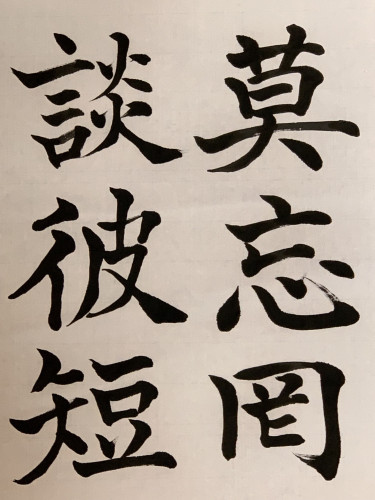 莫忘罔
談彼短